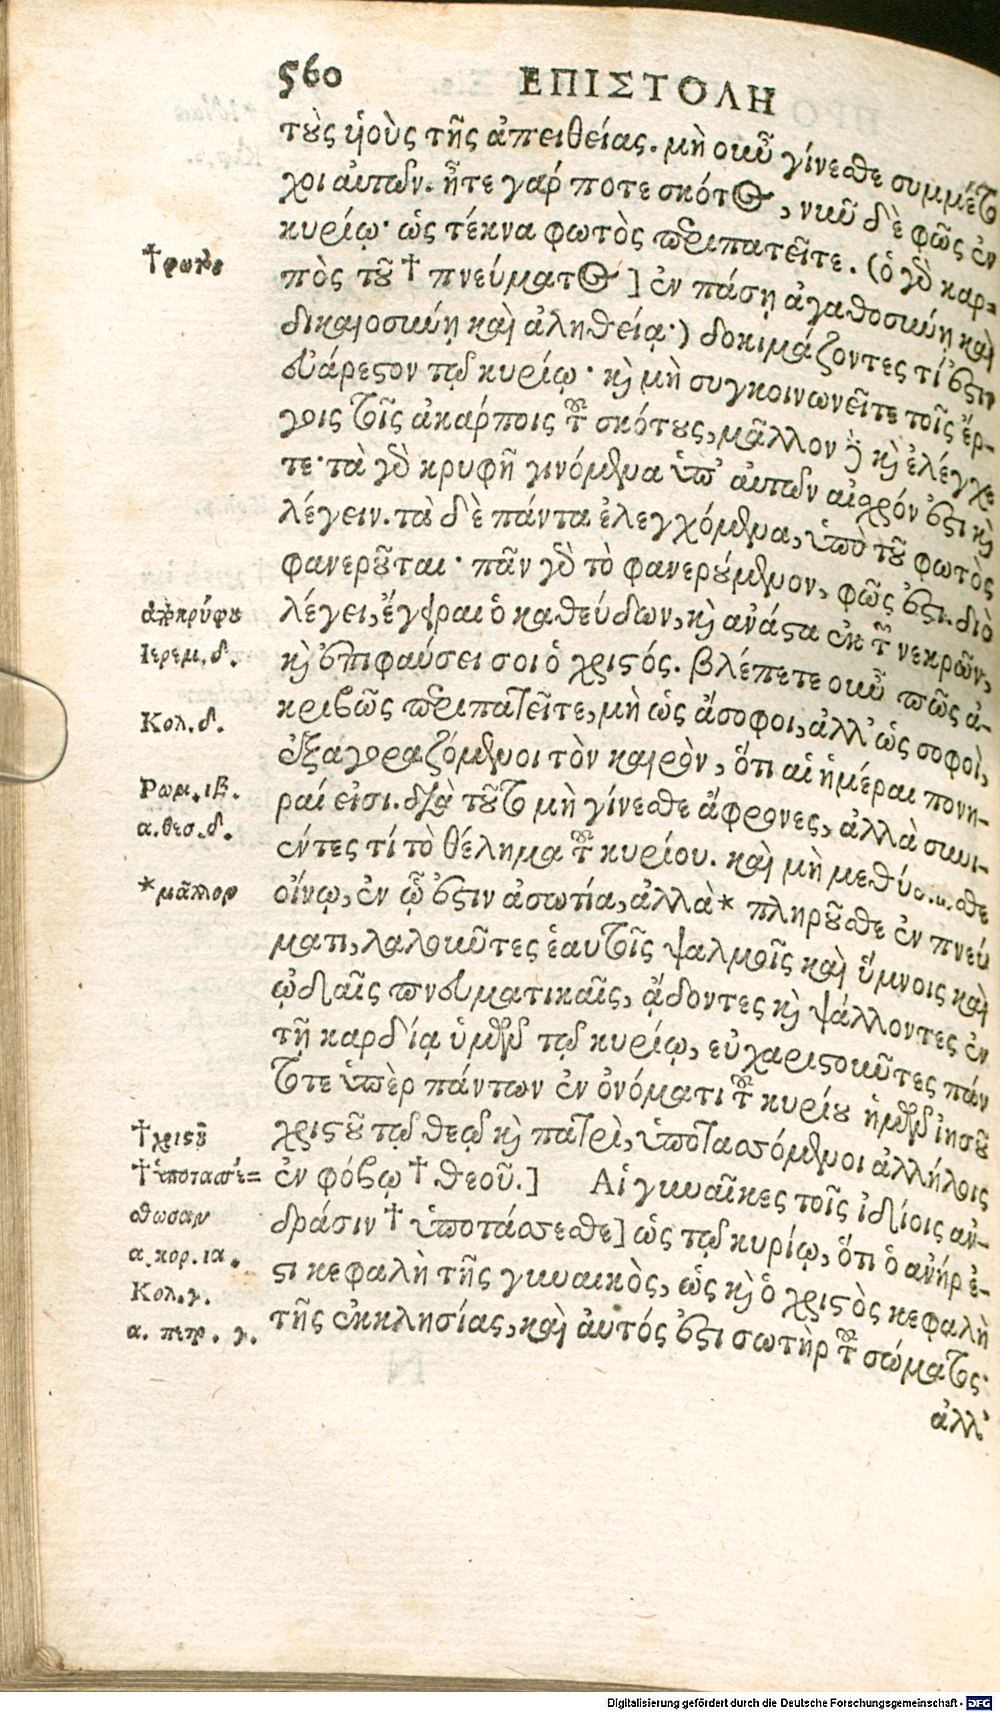 560 ΕΠΙΣΤΟΛΗ
τοὺς υἱοὺς τῆς ἀπειθείας. μὴ οὖν γίνεσθε συμμέτο
χοι αὐτῶν. ἦτε γάρ ποτε σκότος, νῦν δὲ φῶς ἐν
κυρίῳ· ὡς τέκνα φωτὸς περιπατεῖτε. (ὁ γὰρ καρ-
†φωτὸς
πὸς τοῦ † πνεύματος] ἐν πάσῃ ἀγαθοσύνῃ καὶ
δικαιοσύνῃ καὶ ἀληθείᾳ·) δοκιμάζοντες τί ἐστιν
εὐάρεστον τῷ κυρίῳ· καὶ μὴ συγκοινωνεῖτε τοῖς ἔρ-
γοις τοῖς ἀκάρποις τοῦ σκότους, μᾶλλον δὲ καὶ ἐλέγχε
τε· τὰ γὰρ κρυφῆ γινόμενα ὑπ' αὐτῶν αἰσχρόν ἐστι καὶ
λέγειν. τὰ δὲ πάντα ἐλεγχόμενα, ὑπὸ τοῦ φωτὸς
φανεροῦται· πᾶν γὰρ τὸ φανερούμενον, φῶς ἐστι. διὸ
ἀποκρύφου
λέγει, ἔγειραι ὁ καθεύδων, καὶ ἀνάστα ἐκ τῶν νεκρῶν,
Ιερεμ. δ.
καὶ ἐπιφαύσει σοι ὁ χριστός. βλέπετε οὖν πῶς ἀ-
Κολ. δ.
κριβῶς περιπατεῖτε, μὴ ὡς ἄσοφοι, ἀλλ' ὡς σοφοὶ,
ἐξαγοραζόμενοι τὸν καιρὸν, ὅτι αἱ ἡμέραι πονη-
Ρωμ. ιβ.
ραί εἰσι. διὰ τοῦτο μὴ γίνεσθε ἄφρονες, ἀλλὰ συνι-
α. θεσ. δ.
έντες τί τὸ θέλημα τοῦ κυρίου. καὶ μὴ μεθύσκεσθε
*μᾶλλον
οἴνῳ, ἐν ᾧ ἐστιν ἀσωτία, ἀλλὰ* πληροῦσθε ἐν πνεύ
ματι, λαλοῦντες ἑαυτοῖς ψαλμοῖς καὶ ὕμνοις καὶ
ᾠδαῖς πνευματικαῖς, ᾄδοντες καὶ ψάλλοντες ἐν
τῇ καρδίᾳ ὑμῶν τῷ κυρίῳ, εὐχαριστοῦντες πάν
τοτε ὑπὲρ πάντων ἐν ὀνόματι τοῦ κυρίου ἡμῶν ἰησοῦ
†χριστοῦ
χριστοῦ τῷ θεῷ καὶ πατρὶ, ὑποτασσόμενοι ἀλλήλοις
†ὑποτασσέ=
ἐν φόβῳ † θεοῦ.] Αἱ γυναῖκες τοῖς ἰδίοις ἀν-
σθωσαν
δράσιν † ὑποτάσσεσθε] ὡς τῷ κυρίῳ, ὅτι ὁ ἀνήρ ἐ-
α. κορ. ια.
στι κεφαλὴ τῆς γυναικὸς, ὡς καὶ ὁ χριστὸς κεφαλὴ
Κολ. γ.
τῆς ἐκκλησίας, καὶ αὐτός ἐστι σωτὴρ τοῦ σώματος·
α. πετρ. γ.
ἀλλ'
Digitalisierung gefördert durch die Deutsche Forschungsgemeinschaft - DFG